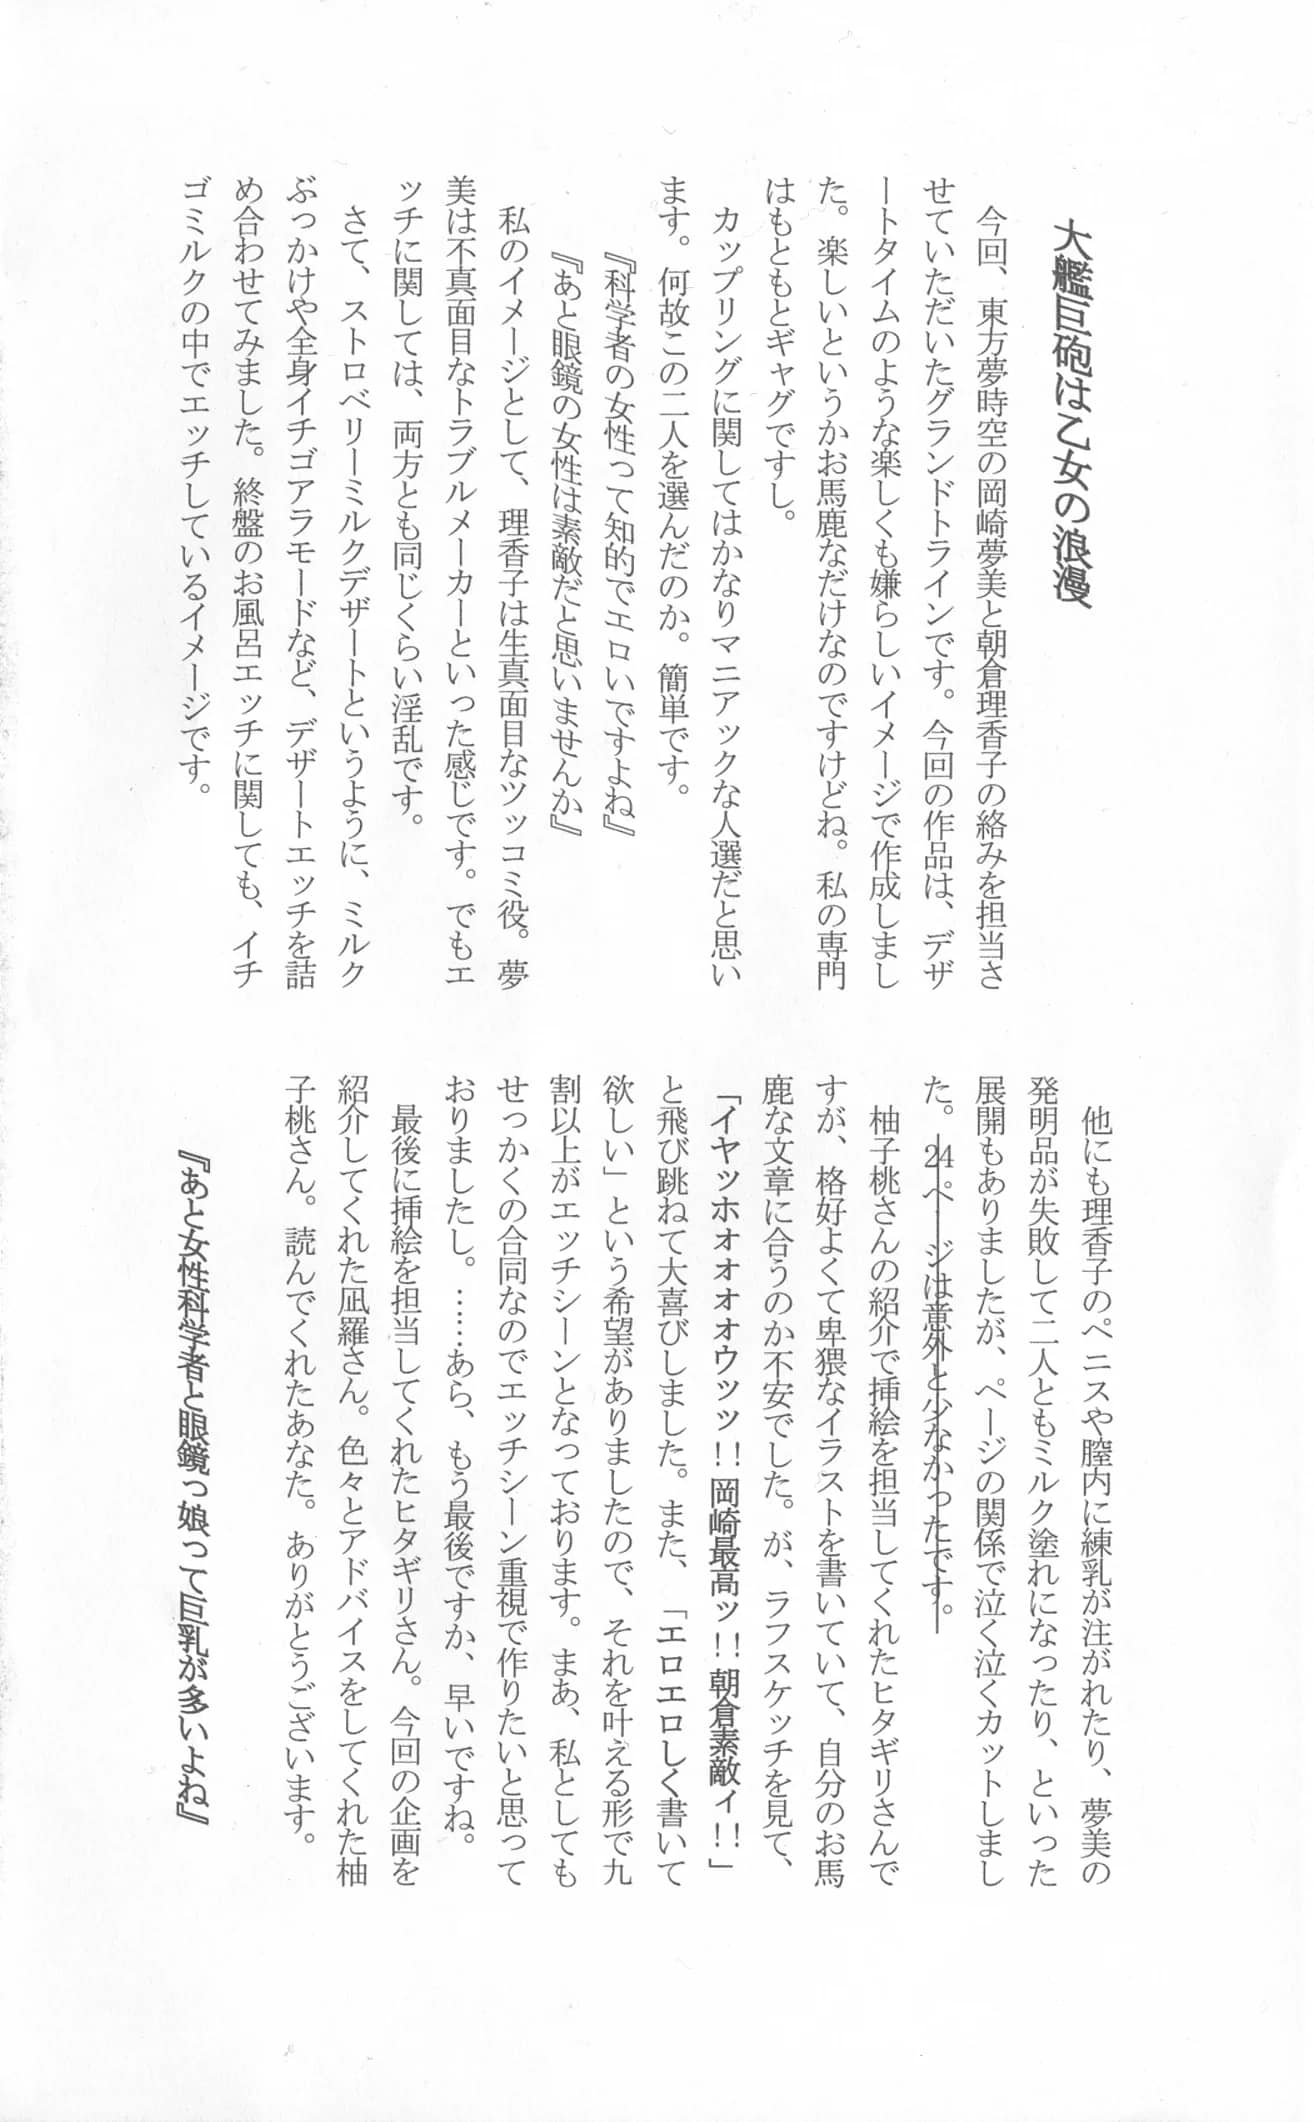 大艦巨砲は乙女の浪漫
　今回、東方夢時空の岡崎夢美と朝倉理香子の絡みを担当さ
せていただいたグランドトラインです。今回の作品は、デザ
ートタイムのような楽しくも嫌らしいイメージで作成しまし
た。楽しいというかお馬鹿なだけなのですけどね。私の専門
はもともとギャグですし。
　カップリングに関してはかなりマニアックな人選だと思い
ます。何故この二人を選んだのか。簡単です。
『科学者の女性って知的でエロいですよね』
『あと眼鏡の女性は素敵だと思いませんか』
　私のイメージとして、理香子は生真面目なツッコミ役。夢
美は不真面目なトラブルメーカーといった感じです。でもエ
ッチに関しては、両方とも同じくらい淫乱です。
　さて、ストロベリーミルクデザートというように、ミルク
ぶっかけや全身イチゴアラモードなど、デザートエッチを詰
め合わせてみました。終盤のお風呂エッチに関しても、イチ
ゴミルクの中でエッチしているイメージです。
　他にも理香子のペニスや膣内に練乳が注がれたり、夢美の
発明品が失敗して二人ともミルク塗れになったり、といった
展開もありましたが、ページの関係で泣く泣くカットしまし
た。24ページは意外と少なかったです。
　柚子桃さんの紹介で挿絵を担当してくれたヒタギリさんで
すが、格好よくて卑猥なイラストを書いていて、自分のお馬
鹿な文章に合うのか不安でした。が、ラフスケッチを見て、
「イヤッホォォォォウッッ!!岡崎最高ッ!!朝倉素敵ィ!!」
と飛び跳ねて大喜びしました。また、「エロエロしく書いて
欲しい」という希望がありましたので、それを叶える形で九
割以上がエッチシーンとなっております。まあ、私としても
せっかくの合同なのでエッチシーン重視で作りたいと思って
おりましたし。……あら、もう最後ですか、早いですね。
　最後に挿絵を担当してくれたヒタギリさん。今回の企画を
紹介してくれた凪羅さん。色々とアドバイスをしてくれた柚
子桃さん。読んでくれたあなた。ありがとうございます。
『あと女性科学者と眼鏡っ娘って巨乳が多いよね』